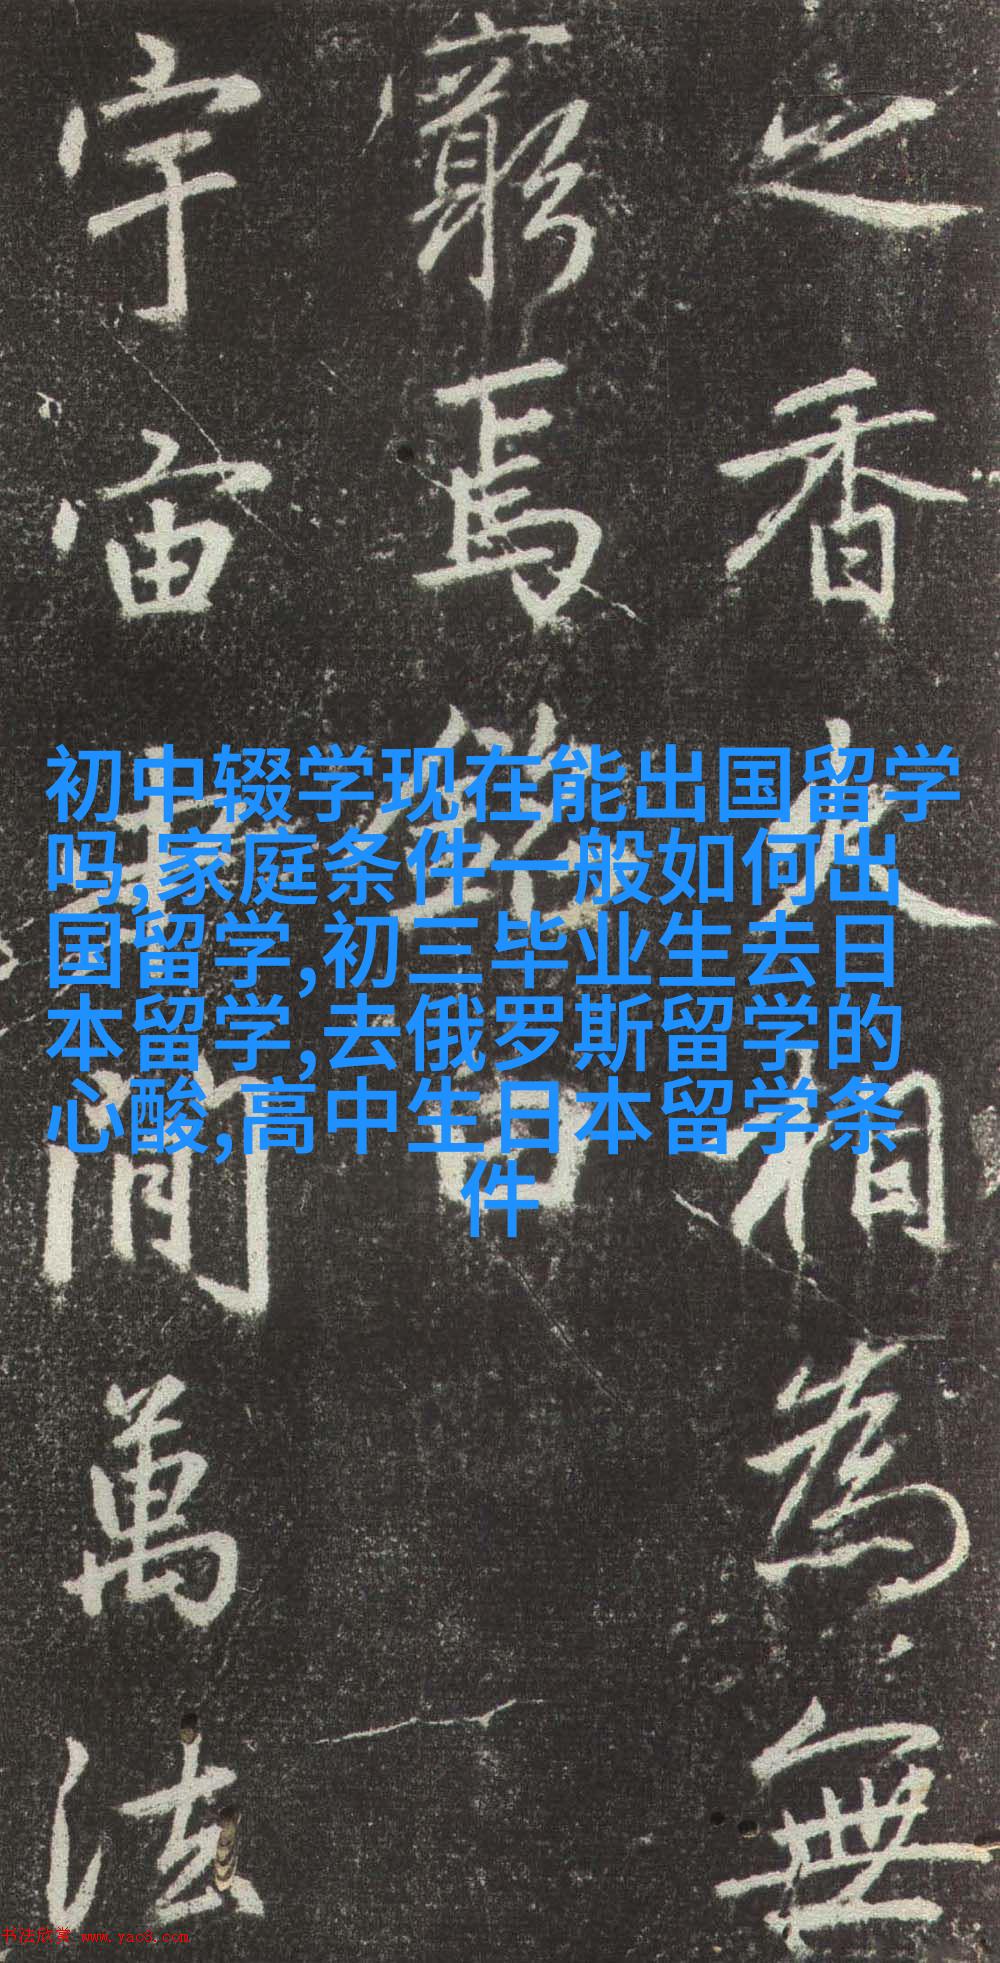 之香相為無
窮焉銘曰
宇宙間萬法
初中辍学现在能出国留学
吗,家庭条件一般如何出
国留学,初三毕业生去日
本留学,去俄罗斯留学的
心酸,高中生日本留学条
件
书法欣赏 www.yac8.com